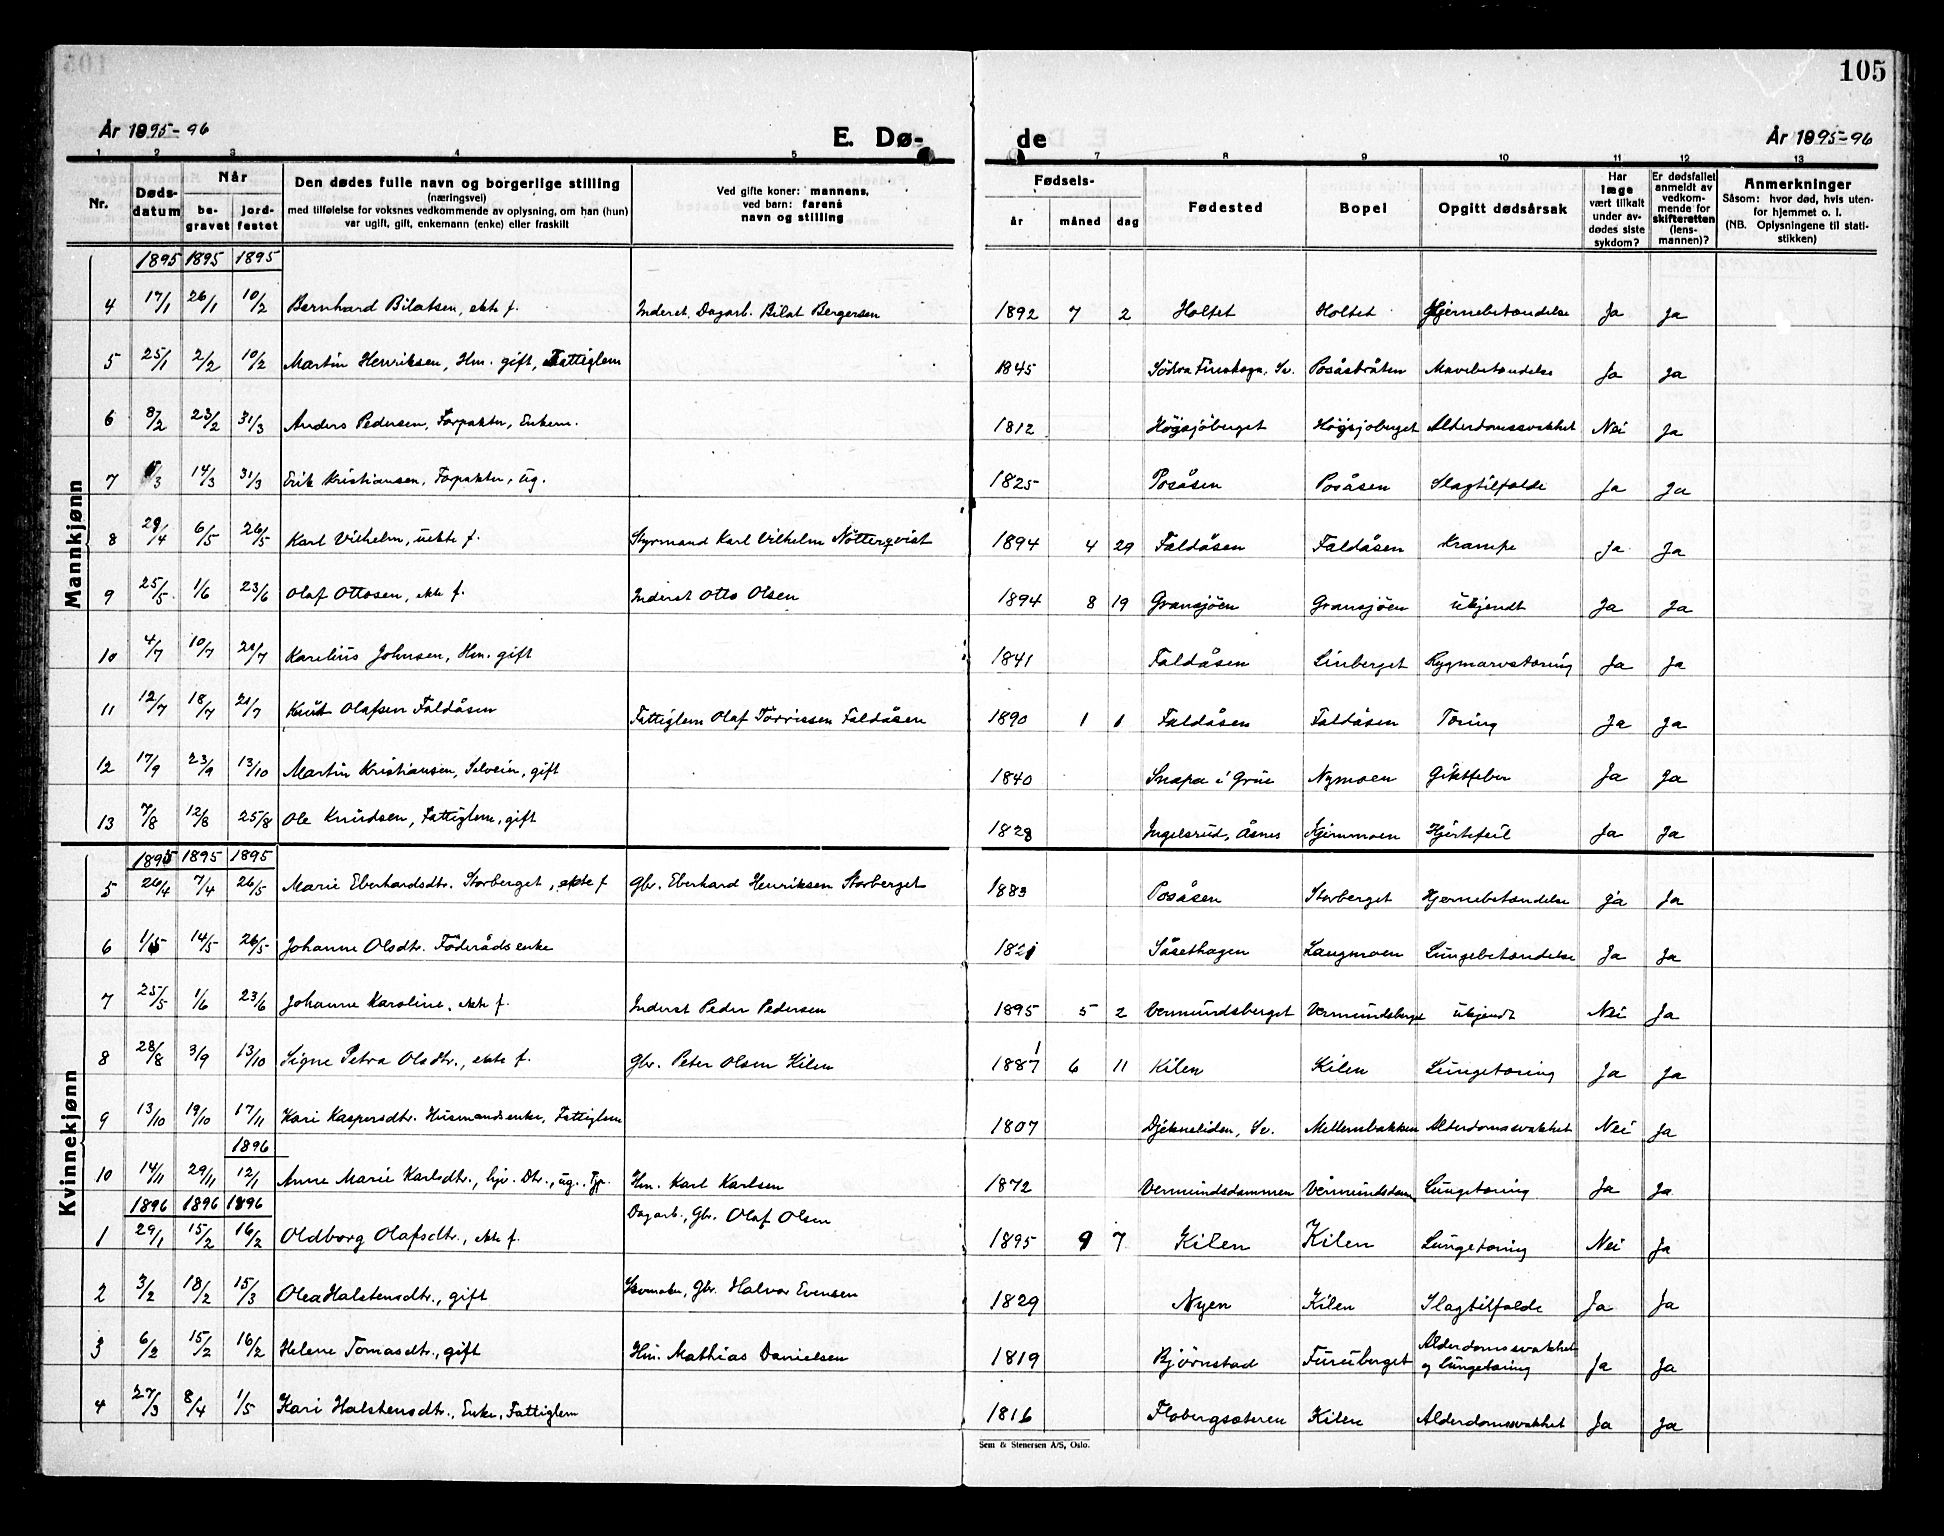 105
År 1895-96
E. Dø-
de
År 1895-96
1 2 3 4 5
7 8 9 10 11 12 13
Nr.
Døds-
datum
Når
be-
gravet
jord-
festet
Den dødes fulle navn og borgerlige stilling
(næringsvei)
med tilføielse for voksnes vedkommende av oplysning, om han (hun)
var ugift, gift, enkemann (enke) eller fraskilt
Ved gifte koner: mannens,
ved barn: farens
navn og stilling
Fødsels-
år måned dag
Fødested
Bopel
Opgitt dødsårsak
Har
læge
vært tilkalt
under av-
dødes siste
sykdom?
Er dødsfallet
anmeldt av
vedkom-
mende for
skifteretten
(lens-
mannen)?
Anmerkninger
Såsom: hvor død, hvis uten-
for hjemmet o. l.
(NB. Oplysningene til stati-
stikken)
Mannkjønn
1895 1895 1895
4 17/1 26/1 10/2 Bernhard Bilatsen, ekte f. Inderst. Dagarb. Bilat Bergersen 1892 7 2 Holtet Holtet Hjernebetændelse Ja Ja
5 25/1 2/2 10/2 Martin Henriksen, Hm. gift, Fattiglem 1845 Södra Finskoga, Sv. Posåsbråten Mavebetændelse Ja Ja
6 8/2 23/2 31/3 Anders Pedersen, Forpakter, Enkem. 1812 Högsjöberget Högsjoberget Alderdomssvakhet Nei Ja
7 /3 14/3 31/3 Erik Kristiansen, Forpakter, ug. 1825 Posåsen Posåsen Slagtilfælde Ja Ja
8 29/4 6/5 26/5 Karl Vilhelm, uekte f. Styrmand Karl Vilhelm Nötterqvist 1894 4 29 Faldåsen Faldåsen Krampe Ja Ja
9 25/5 1/6 23/6 Olaf Ottosen, ekte f. Inderst Otto Olsen 1894 8 19 Gransjöen Gransjöen Ukjendt Ja Ja
10 4/7 10/7 21/7 Karelius Johnsen, Hm. gift 1841 Faldåsen Linberget Rygmarvstæring Ja Ja
11 12/7 18/7 21/7 Knut Olafsen Faldåsen Fattiglem Olaf Torrissen Faldåsen 1890 1 1 Faldåsen Faldåsen Tæring Ja Ja
12 17/9 23/9 13/10 Martin Kristiansen, Selveier, gift 1840 Snapa i Grue Nymoen Giktfeber Ja Ja
13 7/8 12/8 25/8 Ole Knudsen, Fattiglem, gift 1828 Ingelsrud, Åsnes Kjermmoen Hjertefeil Ja Ja
Kvinnekjønn
1895 1895 1895
5 26/4 7/4 26/5 Marie Eberhardsdtr. Storberget, ekte f Gbr. Eberhard Henriksen Storberget 1883 Posåsen Storberget Hjernebetændelse Ja Ja
6 1/5 14/5 26/5 Johanne Olsdtr. Föderådsenke 1821 Såsethagen Langmoen Lungebetændelse Ja Ja
7 25/5 1/6 23/6 Johanne Karoline, ekte f. Inderst Peder Pedersen 1895 5 2 Vermundsberget Vermundsberget Ukjendt Nei Ja
8 28/8 3/9 13/10 Signe Petra Olsdtr., ekte f. Gbr. Peter Olsen Kilen 1887 6 11 Kilen Kilen Lungetæring Ja Ja
9 13/10 19/10 17/11 Kari Kaspersdtr. Husmandsenke, Fattiglem 1807 Djekneliden, Sv. Mellembakken Alderdomssvakhet Nei Ja
1896
10 14/11 29/11 12/1 Anne Marie Karlsdtr., hjv. Dtr., ug. Tjp. Hm. Karl Karlsen 1872 Vermundsdammen Vermundsdam Lungetæring Ja Ja
1896 1896 1896
1 29/1 15/2 16/2 Oldborg Olafsdtr., ekte f. Dagarb., Gbr. Olaf Olsen 1895 9 7 Kilen Kilen Lungetæring Nei Ja
2 3/2 18/2 15/3 Olea Halstensdtr., gift Skomaker, Gbr. Halvor Evensen 1829 Nyen Kilen Slagtilfælde Ja Ja
3 6/2 15/2 16/2 Helene Tomasdtr., gift Hm. Mathias Danielsen 1819 Bjørnstad Furuberget Alderdomssvakhet
og Lungetæring Ja Ja
4 27/3 8/4 1/5 Kari Halstensdtr., Enke, Fattiglem 1816 Flobergsæteren Kilen Alderdomssvakhet Ja Ja
Sem & Stenersen A/S, Oslo.